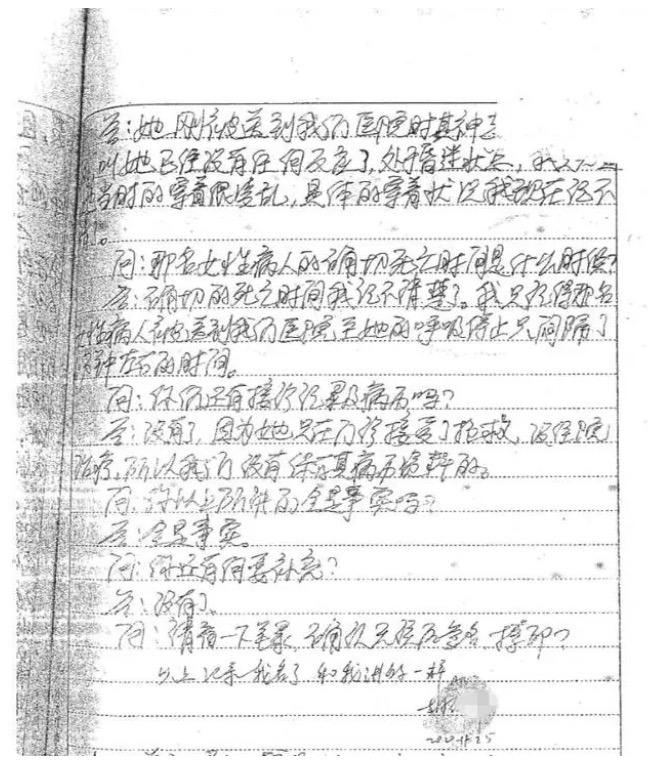 答：她刚刚被送到我们医院时其神
叫她已经没有任何反应了，处于昏迷状态，
当时的穿着很凌乱，具体的穿着状况我现在记不
问：那名女性病人的确切死亡时间是什么时候？
答：确切的死亡时间我记不清楚了。我只记得那名
女性病人被送到我们医院至她的呼吸停止只间隔了
分钟左右的时间。
问：你们还有接诊记录及病历吗？
答：没有了，因为她只在门诊接受了抢救，没住院
治疗，所以我们没有保存其病历资料的。
问：你以上所讲的全是事实吗？
答：全是事实。
问：你还有何要补充？
答：没有了。
问：请看一下笔录，确认无误后签名、捺印？
以上记录我看了和我讲的一样